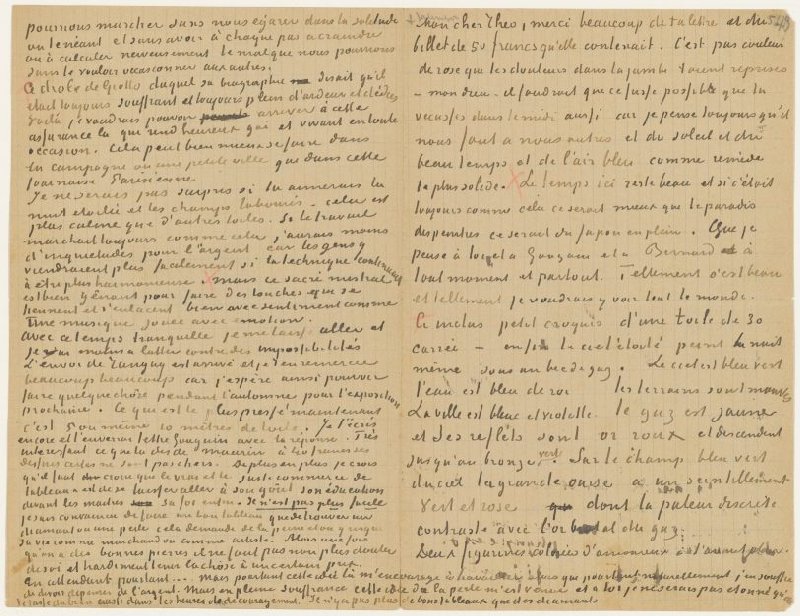 pourrions marcher sans nous egarer dans la solitude
ou le néant et sans avoir à chaque pas a craindre
ou à calculer nerveusement le mal que nous pourrions
sans le vouloir occasionner aux autres.
Ce drole de Giotto duquel sa biographie disait qu'il
etait toujours souffrant et toujours plein d'ardeur et d'idées
voilà je voudrais pouvoir arriver à cette
assurance là qui rend heureux gai et vivant en toute
occasion. Cela peut bien mieux se faire dans
la campagne ou une petite ville que dans cette
fournaise Parisienne
Je ne serais pas surpris si tu aimerais la
nuit etoilée et les champs labourés – celui est
plus calme que d'autres toiles. Si le travail
marchait toujours comme cela j'aurais moins
d'inquietudes pour l'argent car les gens y
viendraient plus facilement si la technique continuait
à être plus harmonieuse. mais ce sacré mistral
est bien gênant pour faire des touches que se
tiennent et s'enlacent bien avec sentiment comme
une musique jouée avec emotion.
Avec ce temps tranquille je me laisse aller et
je ai moins a lutter contre des impossibilités
L'envoi de Tanguy est arrivé et je t'en remercie
beaucoup beaucoup car j'espère ainsi pouvoir
faire quelque chôse pendant l'automne pour l'exposition
prochaine. Ce qui est le plus pressé maintenant
c'est 5 ou même 10 mètres de toile. Je t'écris
encore et t'enverrai lettre Gauguin avec la réponse. Très
interessant ce que tu dis de Maurin à 40 francs ses
dessins certes ne sont pas chers. De plus en plus je crois
qu'il faut croire que le vrai et le juste commerce de
tableaux est de se laisser aller à son goût son éducation
devant les maitres sa foi enfin. Je n'est pas plus facile
je suis convaincu de faire un bon tableau que de trouver un
diamant ou une perle cela demande de la peine et on y risque
sa vie comme marchand ou comme artiste. Alors une fois
qu'on a des bonnes pierres il ne faut pas non plus douter
de soi et hardiment tenir la chôse à un certain prix.
En attendant pourtant.... mais pourtant cette idée là m'encourage à travailler alors que pourtant naturellement j'en souffre
de devoir depenser de l'argent. Mais en pleine souffrance cette idée de la perle m'est venue et à toi je ne serais pas etonné qu'elle
te fasse du bien aussi dans les heures de decouragement. Il n'y a pas plus de bons tableaux que des diamants
Mon cher Theo, merci beaucoup de ta lettre et du
billet de 50 francs qu'elle contenait. C'est pas couleur
de rose que les douleurs dans la jambe t'aient reprises
– mon dieu – il faudrait que ce fusse possible que tu
vecusses dans le midi aussi car je pense toujours qu'il
nous faut a nous autres et du soleil et du
beau temps et de l'air bleu comme remède
le plus solide. Le temps ici reste beau et si c'était
toujours comme cela ce serait mieux que le paradis
des peintres ce serait du Japon en plein. Que je
pense à toi et a Gauguin et a Bernard à
tout moment et partout. Tellement c'est beau
et tellement je voudrais y voir tout le monde.
Ci inclus petit croquis d'une toile de 30
carrée – enfin le ciel étoilé peint la nuit
même sous un bec de gaz. Le ciel est bleu vert
l'eau est bleu de roi les terrains sont mauves
La ville est bleue et violette. le gaz est jaune
et des reflets sont or roux et descendent
jusqu'au bronze vert. Sur le champ bleu vert
du ciel la grande ourse a un scintillement
vert et rose dont la paleur discrète
contraste avec l'or brutal du gaz.
Deux figurines colorées d'amoureux à l'avant plan.